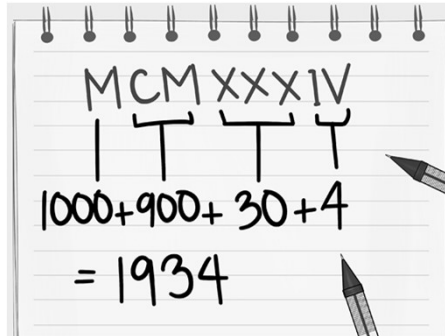 MCMXXXIV
1000+900+30+4
=1934